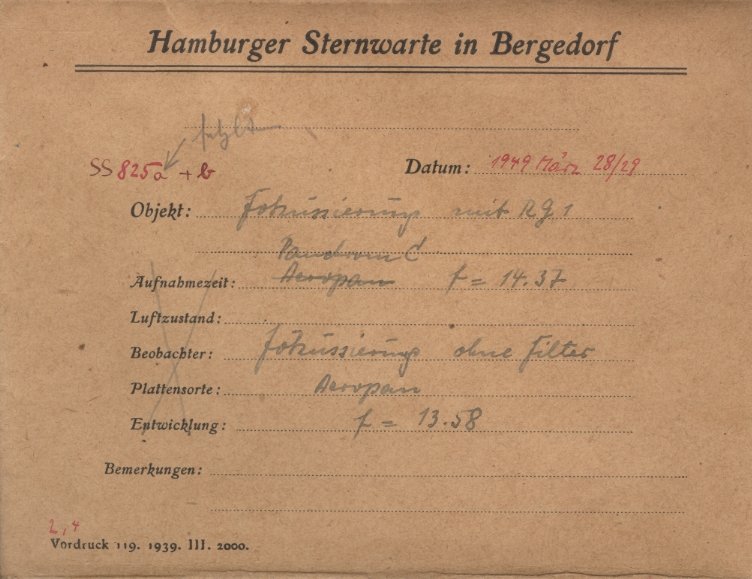 Hamburger Sternwarte in Bergedorf
fehlt
SS 825a + b
Datum: 1949 März 28/29
Objekt: Fokussierung mit RG1
Pandrom C
Aufnahmezeit: Aeropan f = 14.37
Luftzustand:
Beobachter: Fokussierung ohne Filter
Plattensorte: Aeropan
Entwicklung: f = 13.58
Bemerkungen:
2,4
Vordruck 119. 1939. III. 2000.